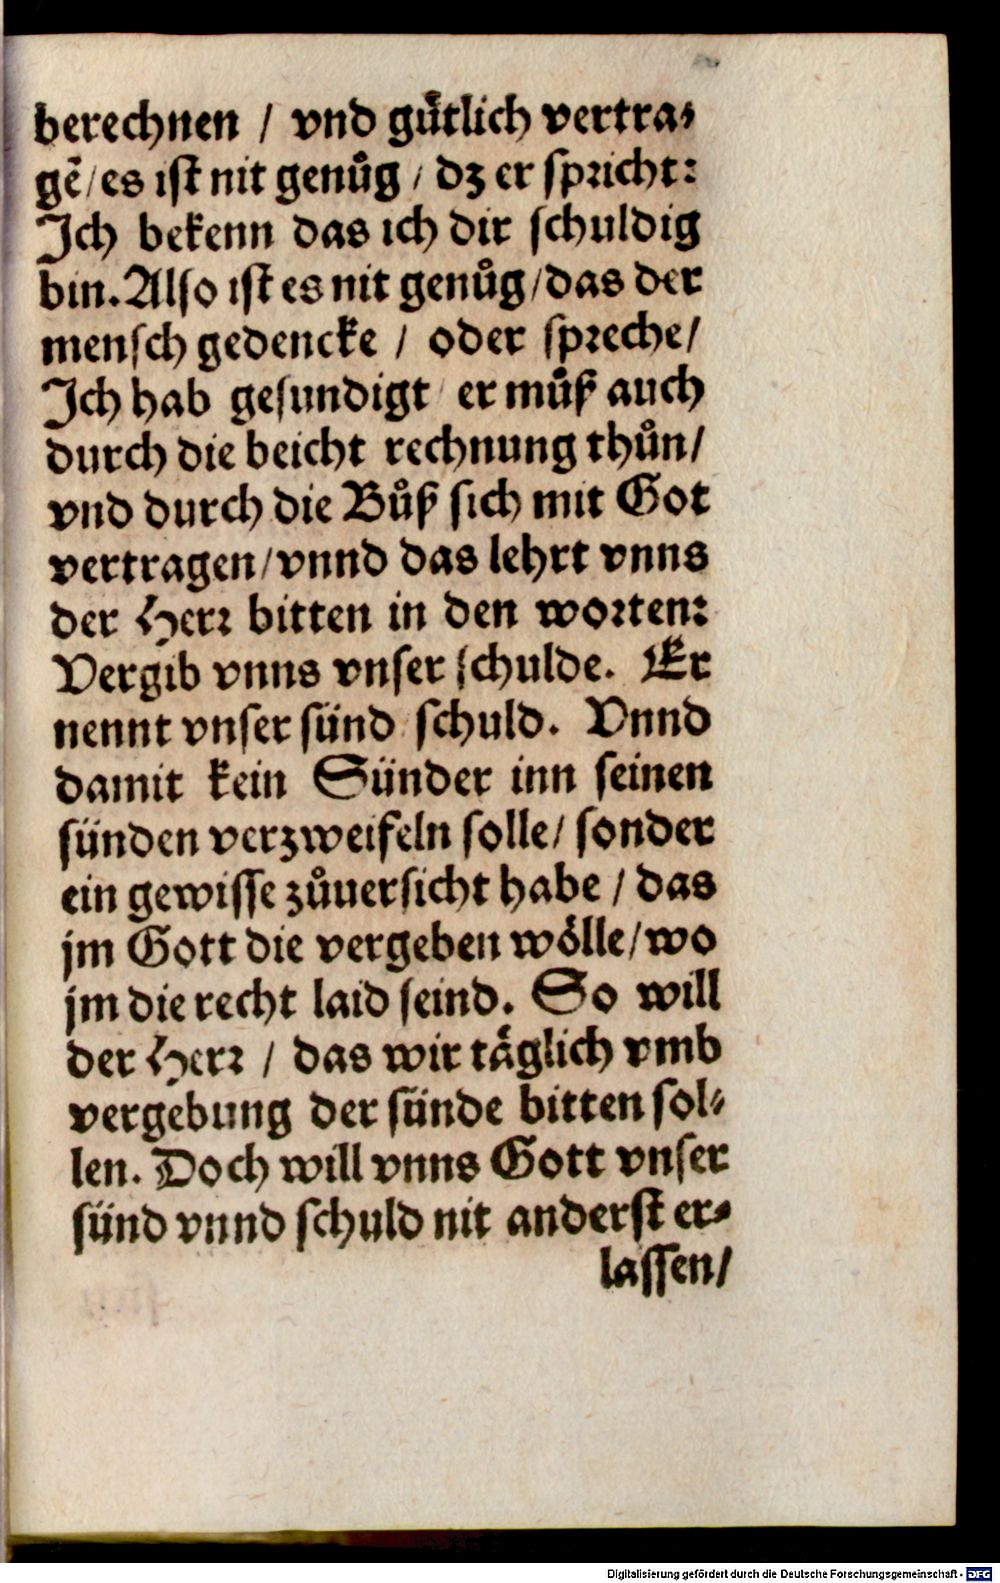 berechnen / vnd guͤtlich vertra⸗
gẽ / es ist nit genuͦg / dz er spricht:
Ich bekenn das ich dir schuldig
bin. Also ist es nit genuͦg / das der
mensch gedencke / oder spreche /
Ich hab gesundigt / er muͦß auch
durch die beicht rechnung thuͦn /
vnd durch die Buͦß sich mit Got
vertragen / vnnd das lehrt vnns
der Herr bitten in den worten:
Vergib vnns vnser schulde. Er
nennt vnser sünd schuld. Vnnd
damit kein Sünder inn seinen
sünden verzweifeln solle / sonder
ein gewisse zuͦuersicht habe / das
jm Gott die vergeben woͤlle / wo
jm die recht laid seind. So will
der Herr / das wir taͤglich vmb
vergebung der sünde bitten sol⸗
len. Doch will vnns Gott vnser
sünd vnnd schuld nit anderst er⸗
lassen /
Digitalisierung gefördert durch die Deutsche Forschungsgemeinschaft - DFG